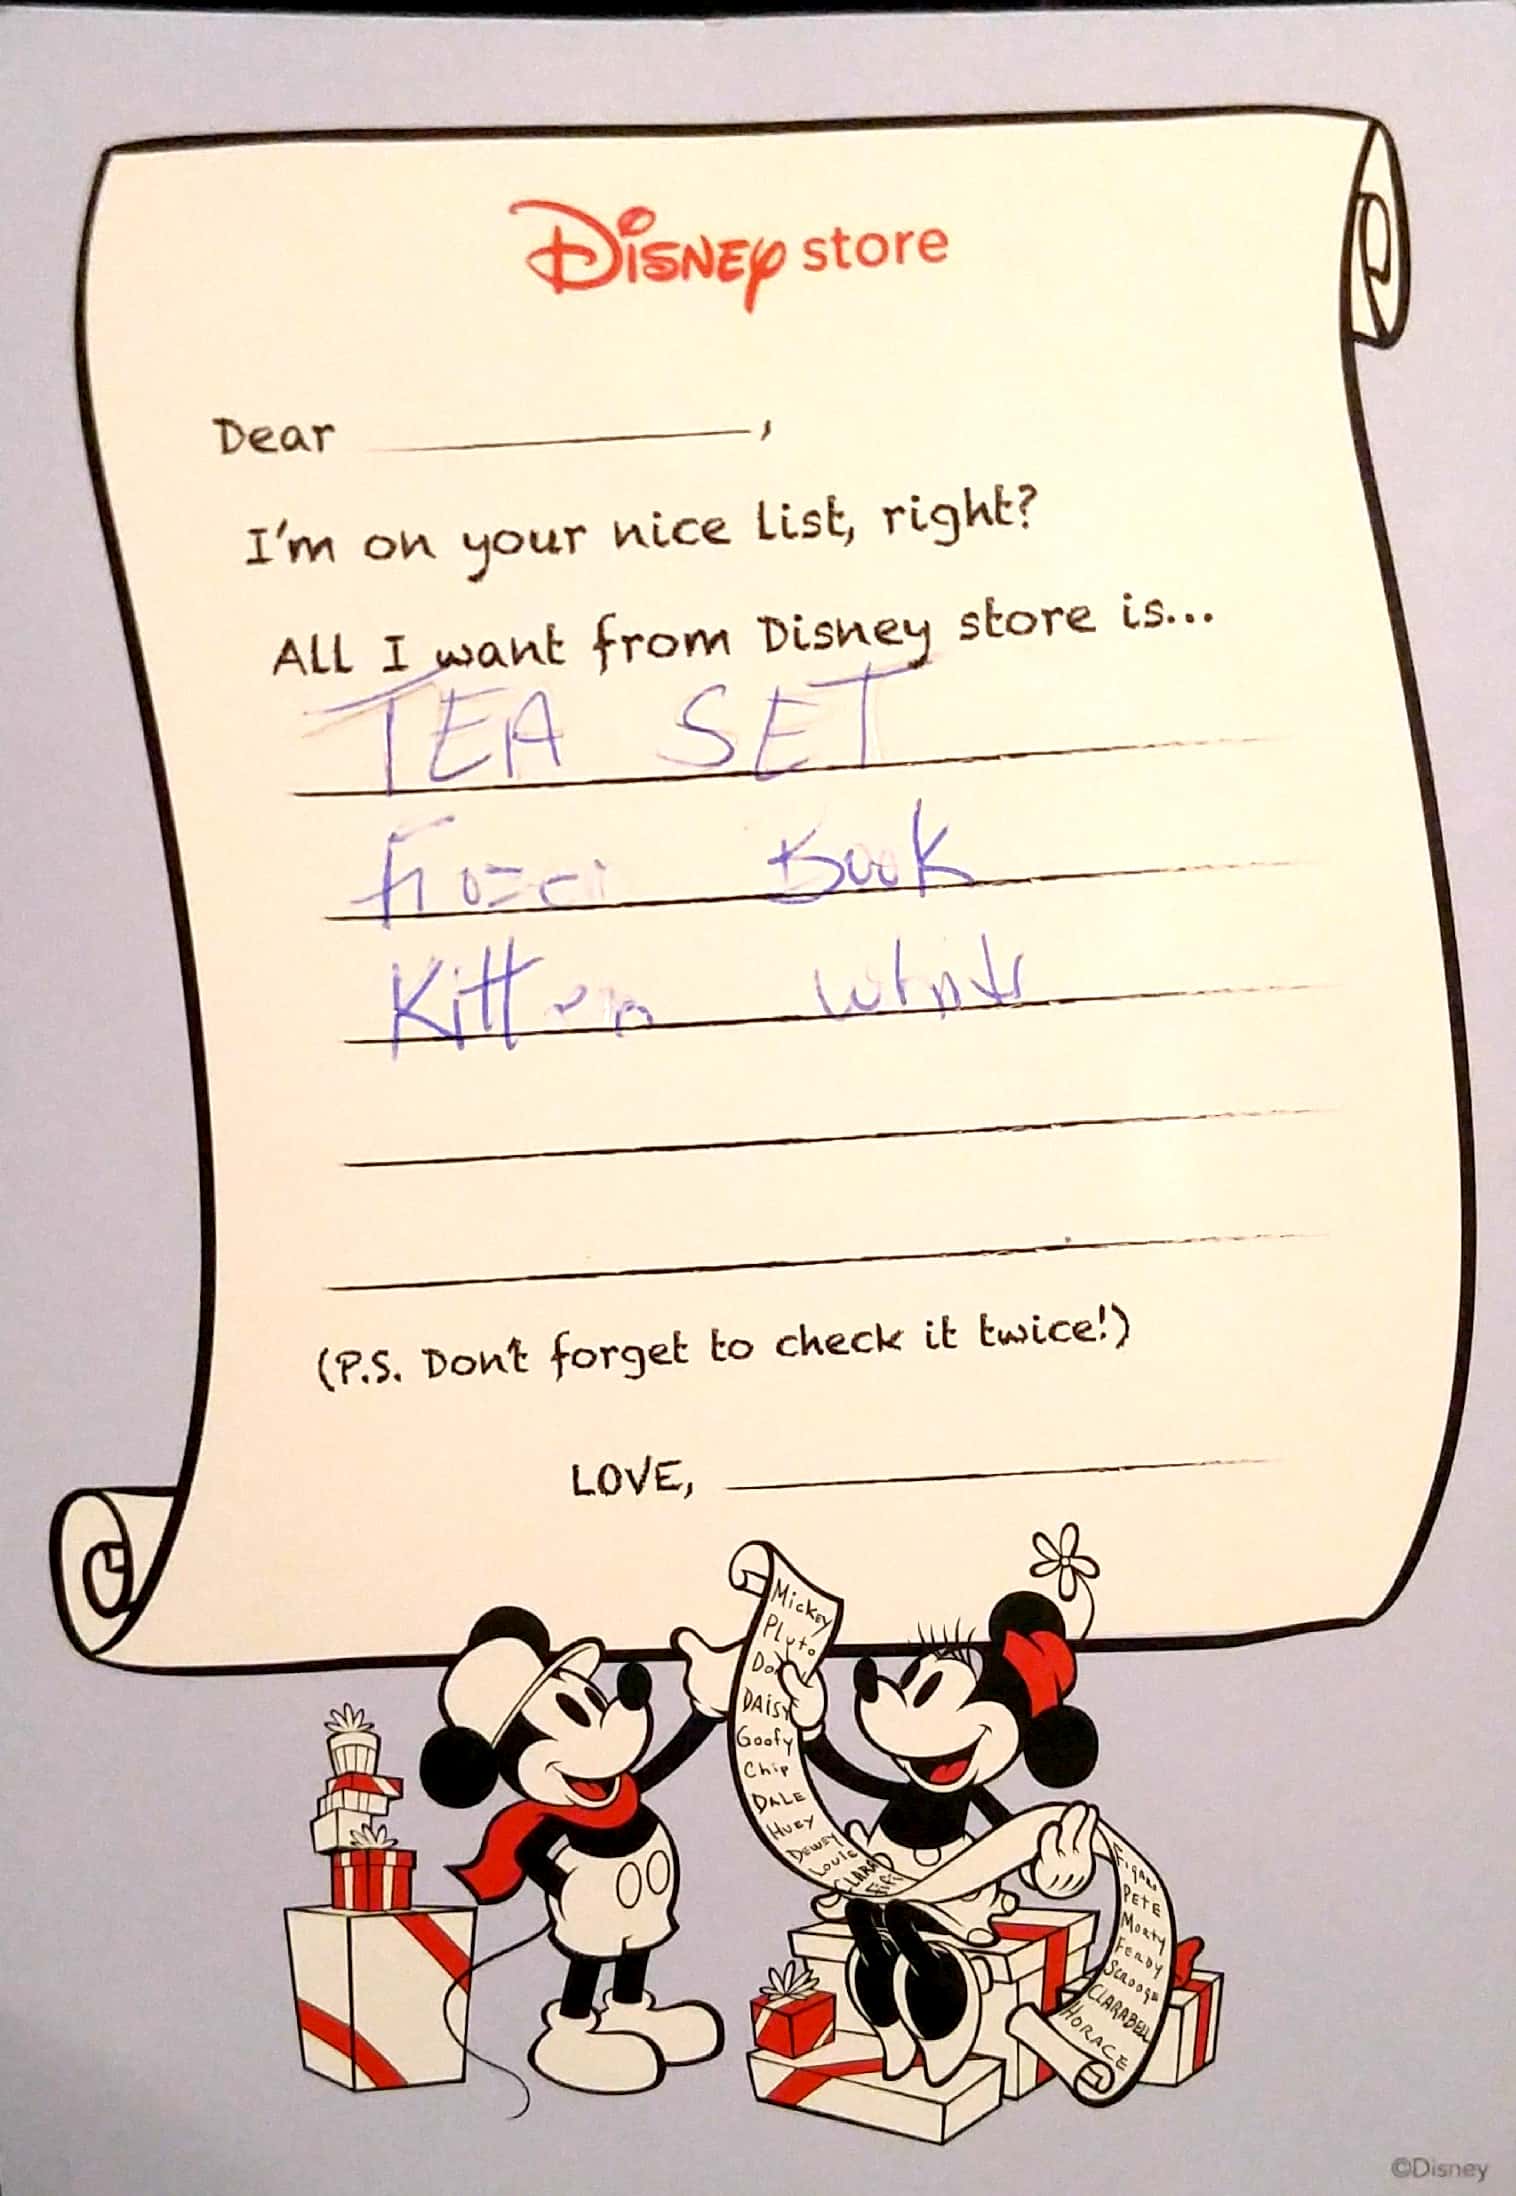 Disney store
Dear ,
I'm on your nice list, right?
All I want from Disney store is...
TEA SET
Frozen Book
Kitten
(P.S. Don't forget to check it twice!)
LOVE,
Mickey
Pluto
Do
DAISY
Goofy
Chip
DALE
HUEY
DEWEY
Louie
CLARA
FiFi
Figaro
PETE
Morty
FERDY
Scrooge
CLARABELL
HORACE
©Disney